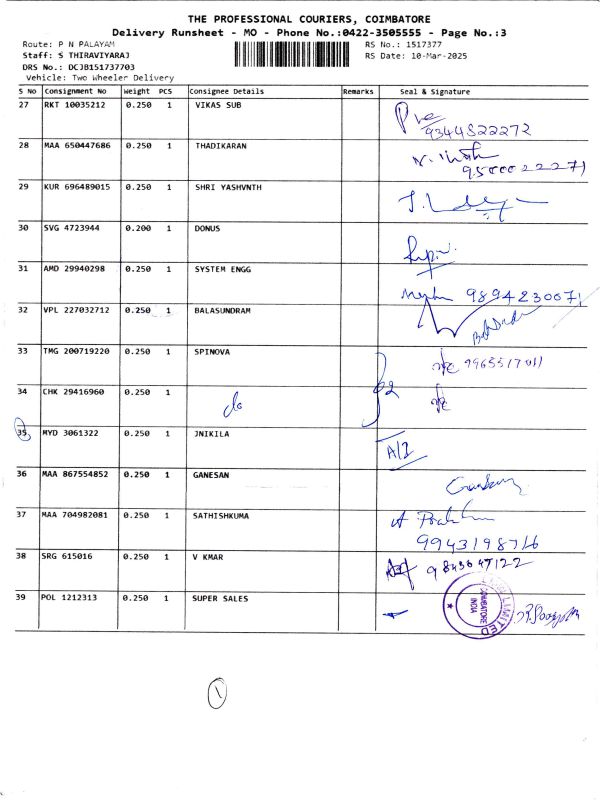 THE PROFESSIONAL COURIERS, COIMBATORE
Delivery Runsheet - MO - Phone No.:0422-3505555 - Page No.:3
Route: P N PALAYAM
RS No.: 1517377
Staff: S THIRAVIYARAJ
RS Date: 10-Mar-2025
DRS No.: DCJB151737703
Vehicle: Two Wheeler Delivery
S No Consignment No Weight PCS Consignee Details Remarks Seal & Signature
27 RKT 10035212 0.250 1 VIKAS SUB
9344822272
28 MAA 650447686 0.250 1 THADIKARAN
9500022271
29 KUR 696489015 0.250 1 SHRI YASHVNTH
30 SVG 4723944 0.200 1 DONUS
31 AMD 29940298 0.250 1 SYSTEM ENGG
9894230071
32 VPL 227032712 0.250 1 BALASUNDRAM
33 TMG 200719220 0.250 1 SPINOVA
9965517011
34 CHK 29416960 0.250 1 do
35 MYD 3061322 0.250 1 JNIKILA
36 MAA 867554852 0.250 1 GANESAN
37 MAA 704982081 0.250 1 SATHISHKUMA
9943198716
38 SRG 615016 0.250 1 V KMAR
9843647122
39 POL 1212313 0.250 1 SUPER SALES
LIMITED
COIMBATORE
INDIA
1